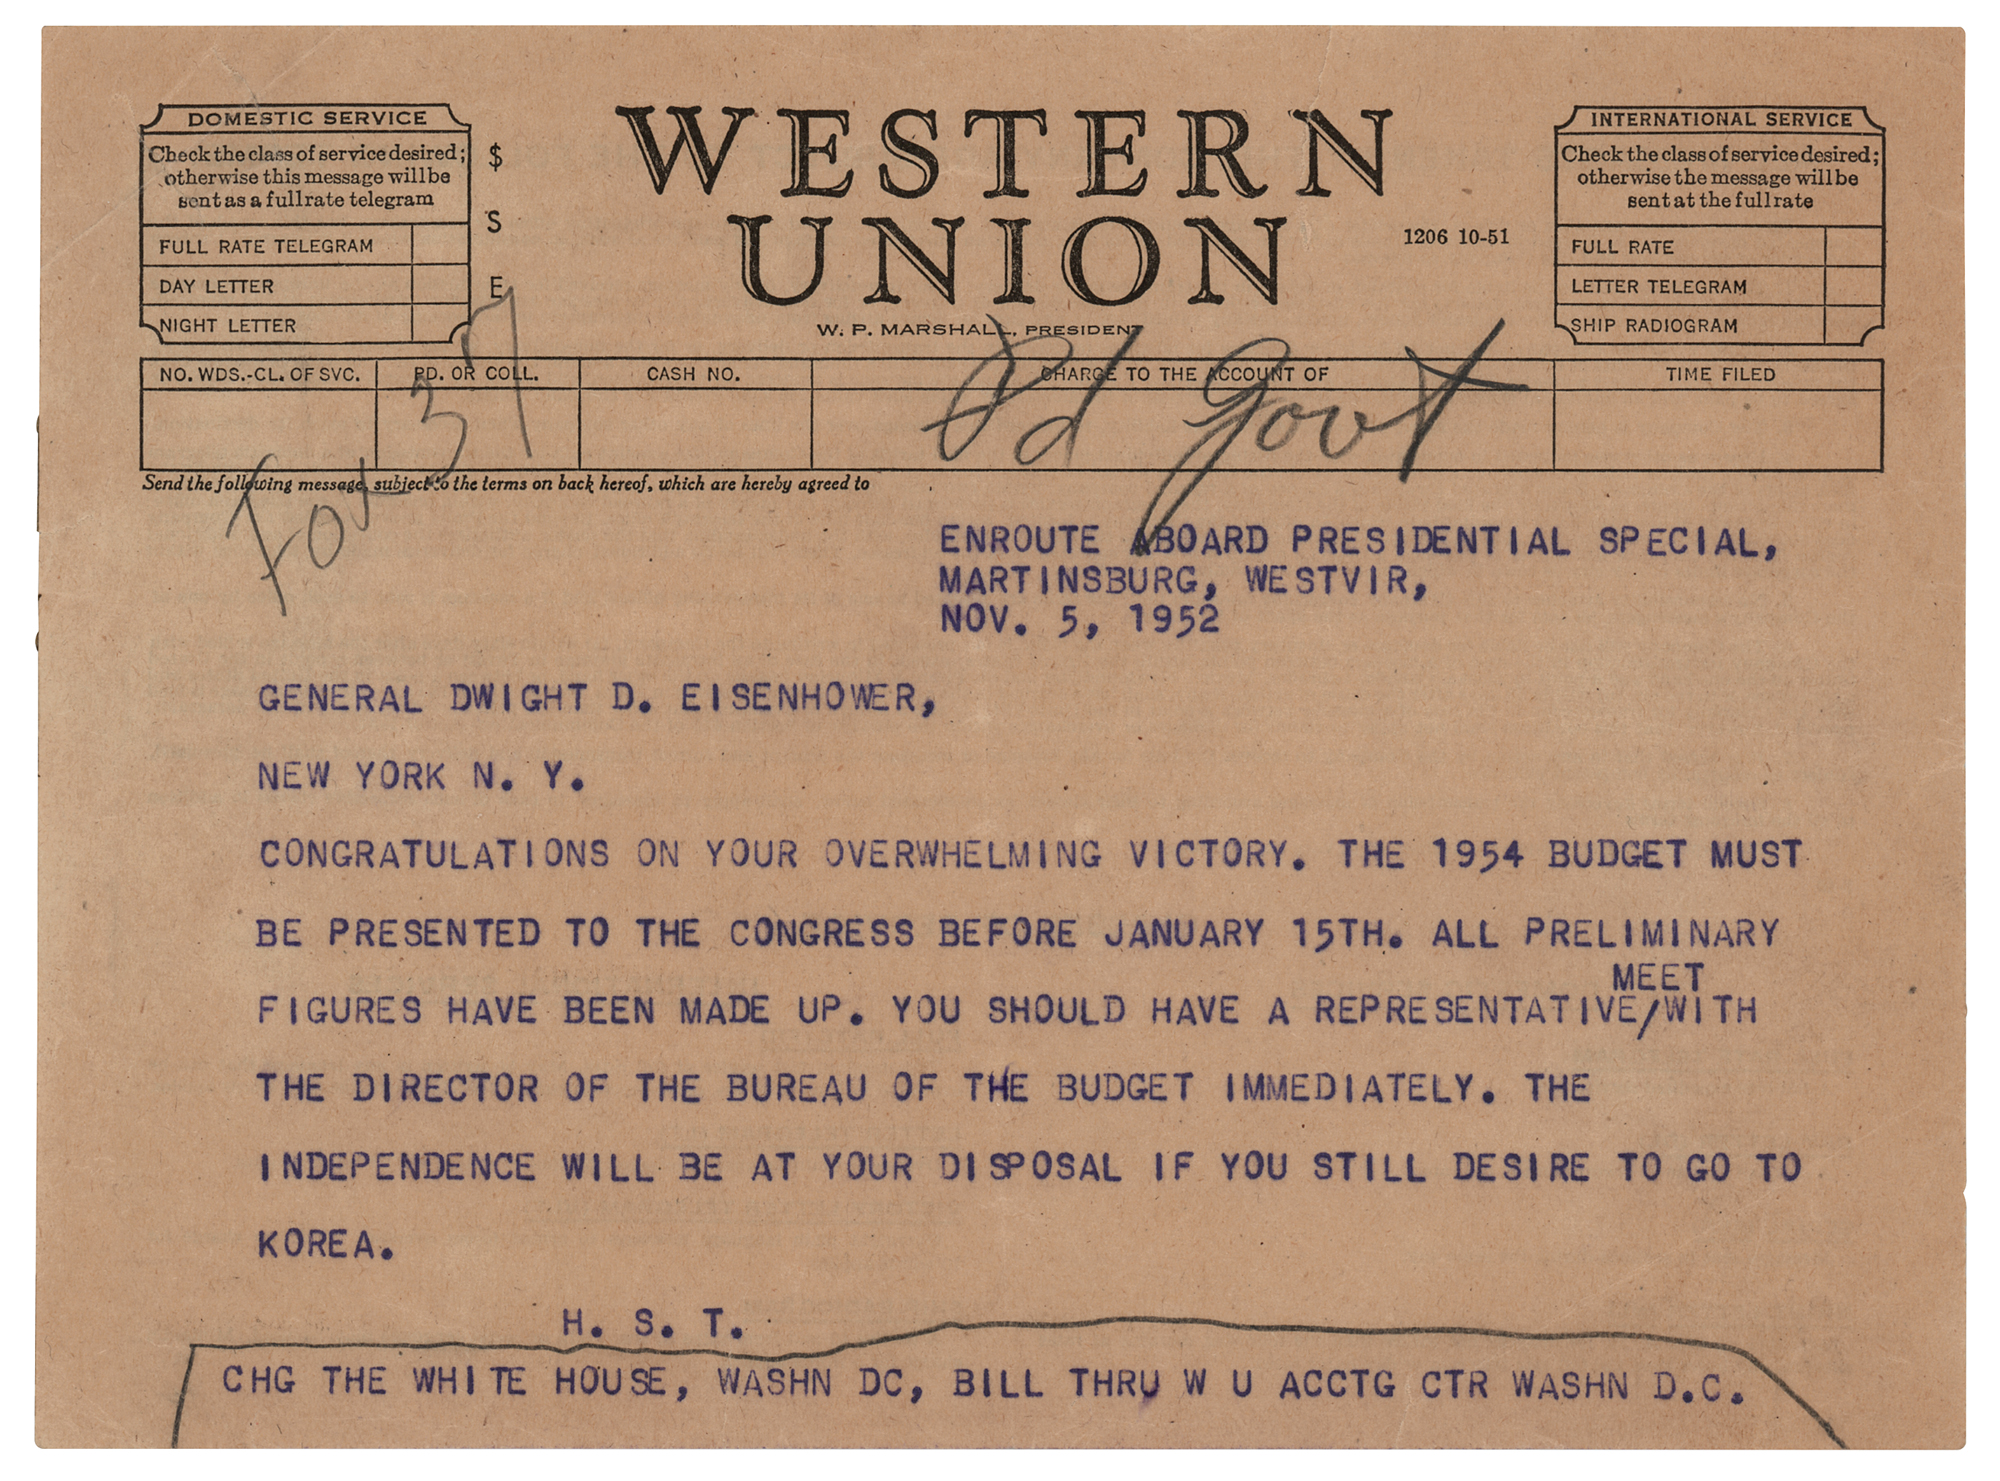 DOMESTIC SERVICE
Check the class of service desired;
otherwise this message will be
sent as a full rate telegram
FULL RATE TELEGRAM
DAY LETTER
NIGHT LETTER
$
S
E
WESTERN
UNION
1206 10-51
W. P. MARSHALL, PRESIDENT
INTERNATIONAL SERVICE
Check the class of service desired;
otherwise the message will be
sent at the full rate
FULL RATE
LETTER TELEGRAM
SHIP RADIOGRAM
NO. WDS.-CL. OF SVC.
PD. OR COLL.
CASH NO.
CHARGE TO THE ACCOUNT OF
TIME FILED
37
Pd Govt
Send the following message, subject to the terms on back hereof, which are hereby agreed to
ENROUTE ABOARD PRESIDENTIAL SPECIAL,
MARTINSBURG, WESTVIR,
NOV. 5, 1952
GENERAL DWIGHT D. EISENHOWER,
NEW YORK N. Y.
CONGRATULATIONS ON YOUR OVERWHELMING VICTORY. THE 1954 BUDGET MUST
BE PRESENTED TO THE CONGRESS BEFORE JANUARY 15TH. ALL PRELIMINARY
MEET
FIGURES HAVE BEEN MADE UP. YOU SHOULD HAVE A REPRESENTATIVE/WITH
THE DIRECTOR OF THE BUREAU OF THE BUDGET IMMEDIATELY. THE
INDEPENDENCE WILL BE AT YOUR DISPOSAL IF YOU STILL DESIRE TO GO TO
KOREA.
H. S. T.
CHG THE WHITE HOUSE, WASHN DC, BILL THRU W U ACCTG CTR WASHN D.C.